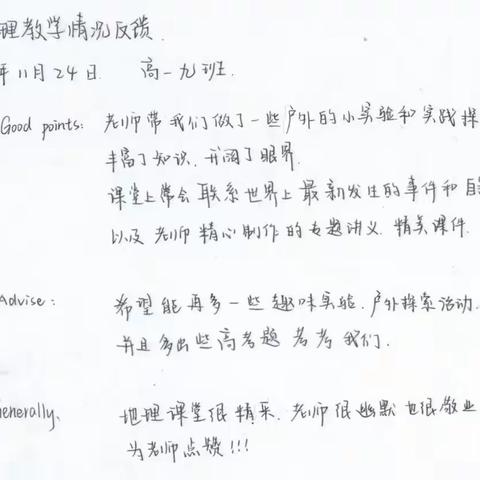 理教学情况反馈.
年11月24日. 高一九班.
Good points: 老师带我们做了一些户外的小实验和实践探
丰富了知识. 开阔了眼界.
课堂上常会联系世界上最新发生的事件和自
以及老师精心制作的专题讲义. 精美课件.
Advise: 希望能再多一些趣味实验. 户外探索活动.
并且多出些高考题考考我们.
Generally. 地理课堂很精采. 老师很幽默也很敬业
为老师点赞!!!